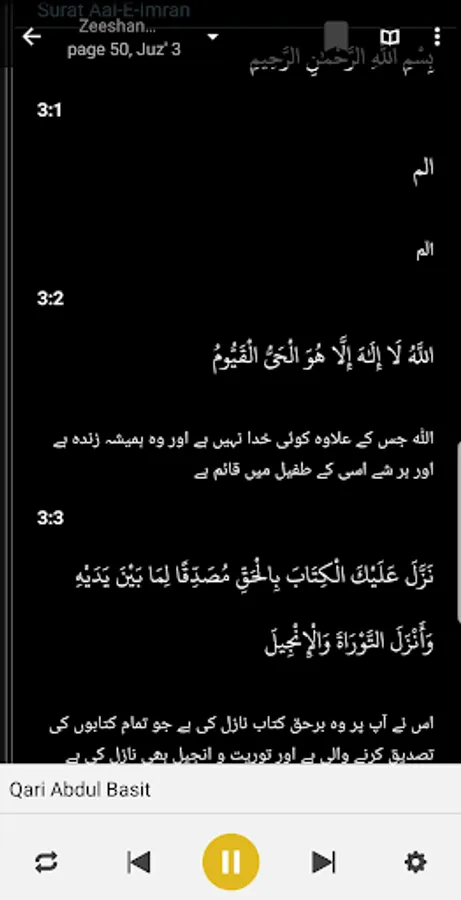 Surat Aal-E-Imran
Zeeshan...
page 50, Juz' 3
بِسْمِ اللَّهِ الرَّحْمَٰنِ الرَّحِيمِ
3:1
الم
الم
3:2
اللَّهُ لَا إِلَٰهَ إِلَّا هُوَ الْحَيُّ الْقَيُّومُ
الله جس کے علاوہ کوئی خدا نہیں ہے اور وہ ہمیشہ زندہ ہے
اور ہر شے اسی کے طفیل میں قائم ہے
3:3
نَزَّلَ عَلَيْكَ الْكِتَابَ بِالْحَقِّ مُصَدِّقًا لِمَا بَيْنَ يَدَيْهِ
وَأَنْزَلَ التَّوْرَاةَ وَالْإِنْجِيلَ
اس نے آپ پر وہ برحق کتاب نازل کی ہے جو تمام کتابوں کی
تصدیق کرنے والی ہے اور توریت و انجیل بھی نازل کی ہے
Qari Abdul Basit